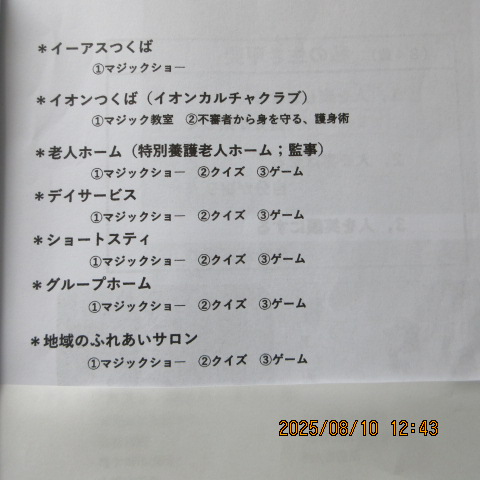 ＊イーアスつくば
①マジックショー
＊イオンつくば（イオンカルチャクラブ）
①マジック教室　②不審者から身を守る、護身術
＊老人ホーム（特別養護老人ホーム；監事）
①マジックショー　②クイズ　③ゲーム
＊デイサービス
①マジックショー　②クイズ　③ゲーム
＊ショートスティ
①マジックショー　②クイズ　③ゲーム
＊グループホーム
①マジックショー　②クイズ　③ゲーム
＊地域のふれあいサロン
①マジックショー　②クイズ　③ゲーム
2025/08/10 12:43